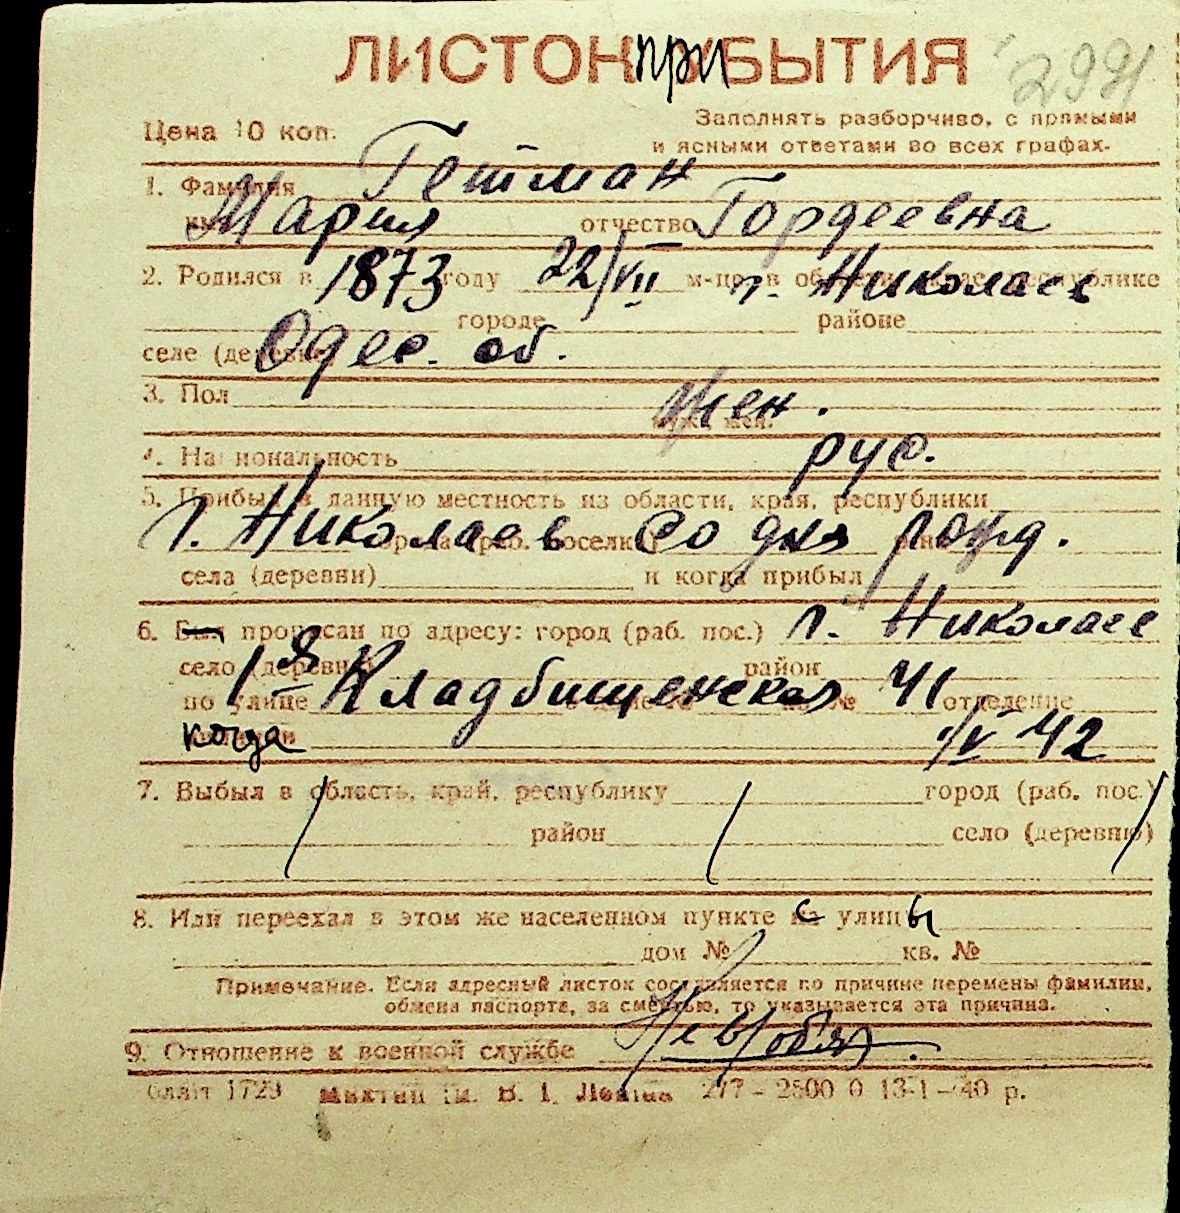 ЛИСТОК при БЫТИЯ 2991
Цена 10 коп. Заполнять разборчиво, с прямыми
и ясными ответами во всех графах.
1. Фамилия Гетман
имя Мария отчество Гордеевна
2. Родился в 1873 году 22/VII м-це, в области, крае, республике г. Николаев
городе районе
селе (деревне) Одес. об.
3. Пол Жен.
муж., жен.
4. Национальность рус.
5. Прибыл в данную местность из области, края, республики
г. Николаев со дня рожд.
города (раб. поселк.)
села (деревни) и когда прибыл
6. Был прописан по адресу: город (раб. пос.) г. Николаев
село (деревня) район
по улице 1я Кладбищенская № 41 отделение
когда /V 42
7. Выбыл в область, край, республику город (раб. пос.)
район село (деревню)
8. Или переехал в этом же населенном пункте с улицы
дом № кв. №
Примечание. Если адресный листок составляется по причине перемены фамилии,
обмена паспорта, за смертью, то указывается эта причина.
9. Отношение к военной службе Не в/обяз.
Облліт 1729 им. В. І. Леніна 277 – 2500 0 13-1-40 р.